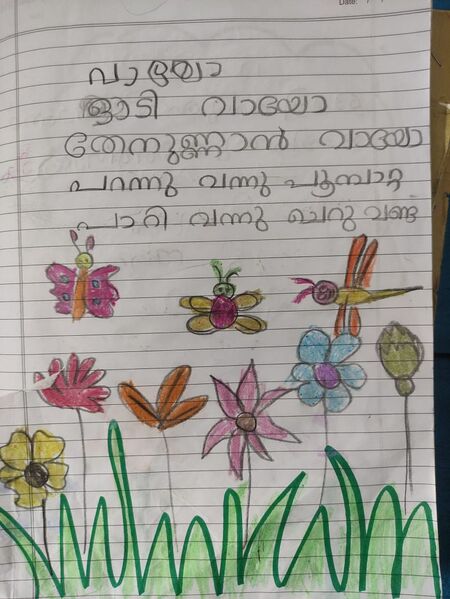 Date:
വായോ
ഓടി വായോ
തേനുണ്ണാൻ വായോ
പറന്നു വന്നു പൂമ്പാറ്റ
പാറി വന്നു ചെറു വണ്ടു